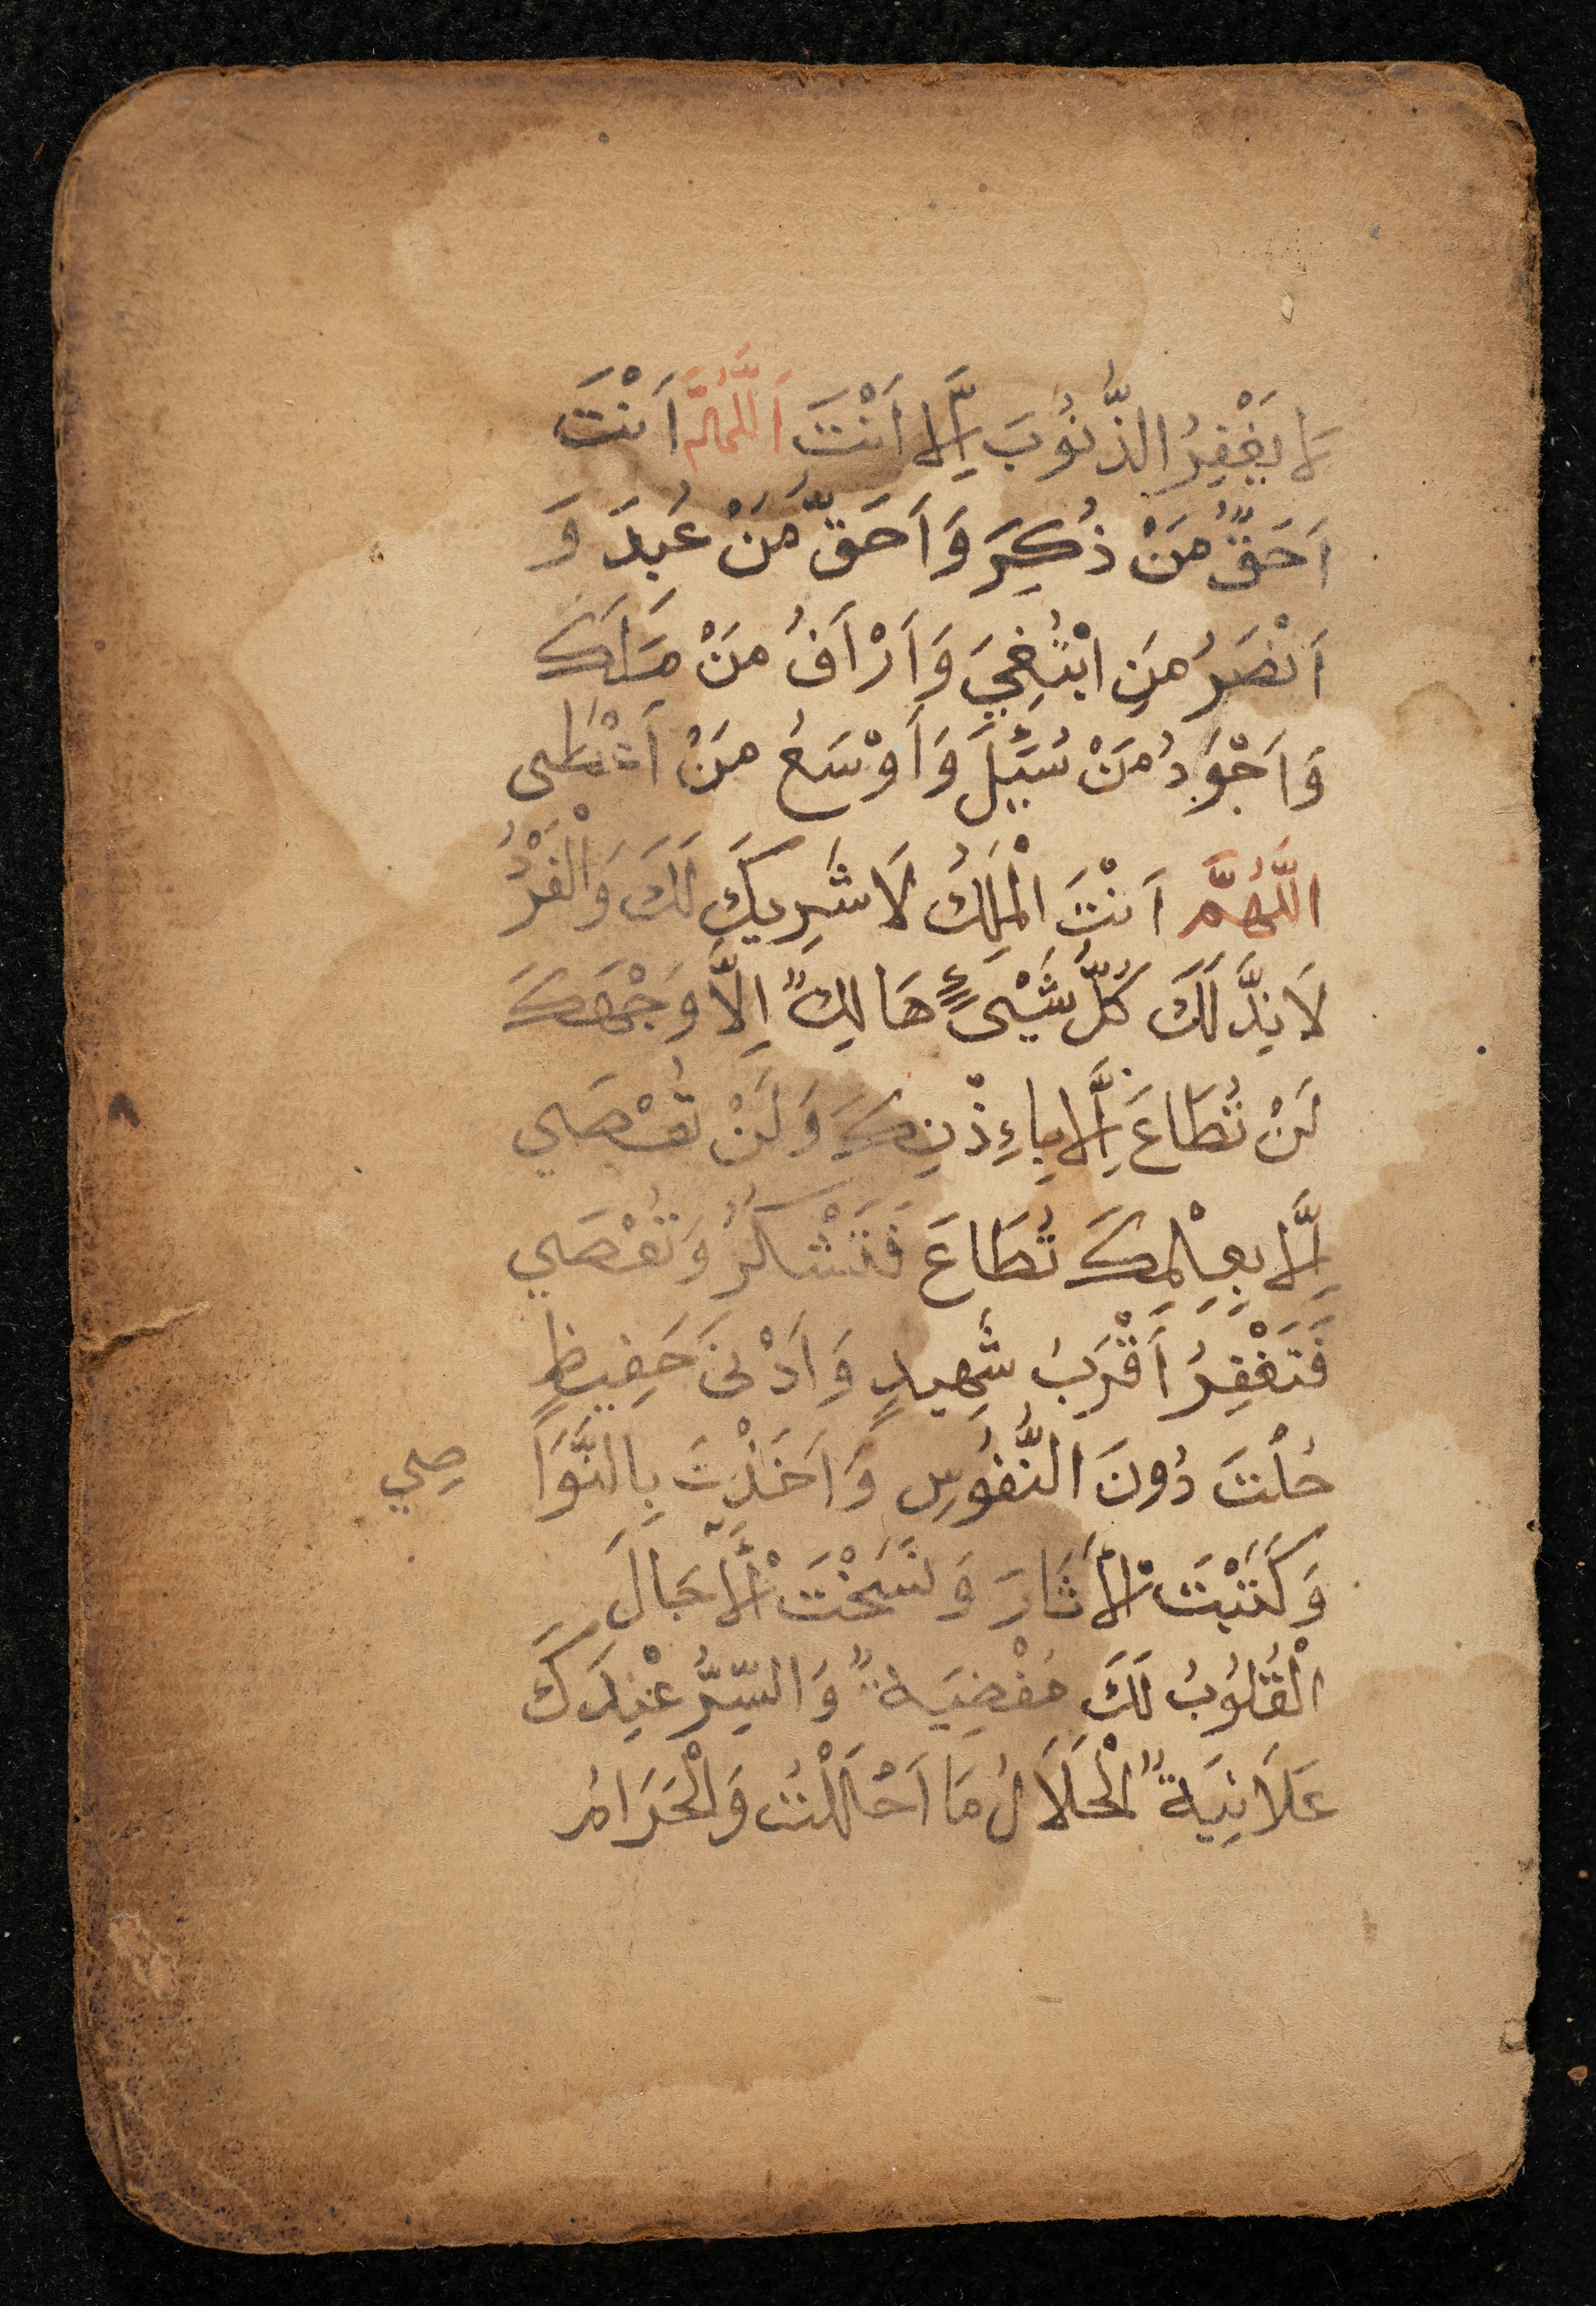 لَا يَغْفِرُ الذُّنُوبَ اِلَّا اَنْتَ اَللَّهُمَّ اَنْتَ
اَحَقُّ مَنْ ذُكِرَ وَاَحَقُّ مَنْ عُبِدَ وَ
اَنْصَرُ مَنِ ابْتُغِيَ وَاَرْاَفُ مَنْ مَلَكَ
وَاَجْوَدُ مَنْ سُئِلَ وَاَوْسَعُ مَنْ اَعْطَى
اللَّهُمَّ اَنْتَ الْمَلِكُ لَا شَرِيكَ لَكَ وَالْفَرْدُ
لَا نِدَّ لَكَ كُلُّ شَيْىءٍ هَالِكٌ اِلَّا وَجْهَكَ
لَنْ تُطَاعَ اِلَّا بِاءِذْنِكَ وَلَنْ تُعْصَي
اِلَّا بِعِلْمِكَ تُطَاعَ فَتَشْكُرُ وَتُعْصَي
فَتَغْفِرُ اَقْرَبُ شَهِيدٍ وَاَدْنَى حَفِيظٍ
حُلْتَ دُونَ النُّفُوسِ وَاَخَذْتَ بِالنَّوَا صِي
وَكَتَبْتَ الْأَثَارَ وَنَسَخْتَ الْأَجَالَ
الْقُلُوبُ لَكَ مُفْضِيَةٌ وَالسِّرُّ عِنْدَكَ
عَلَانِيَةٌ الْحَلَالُ مَا اَحْلَلْتَ وَالْحَرَامُ